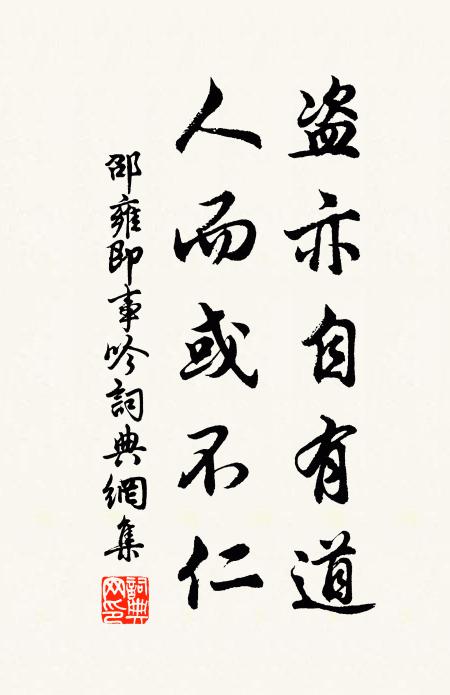 盗亦自有道
人而或不仁
邵雍即事吟詞典網集